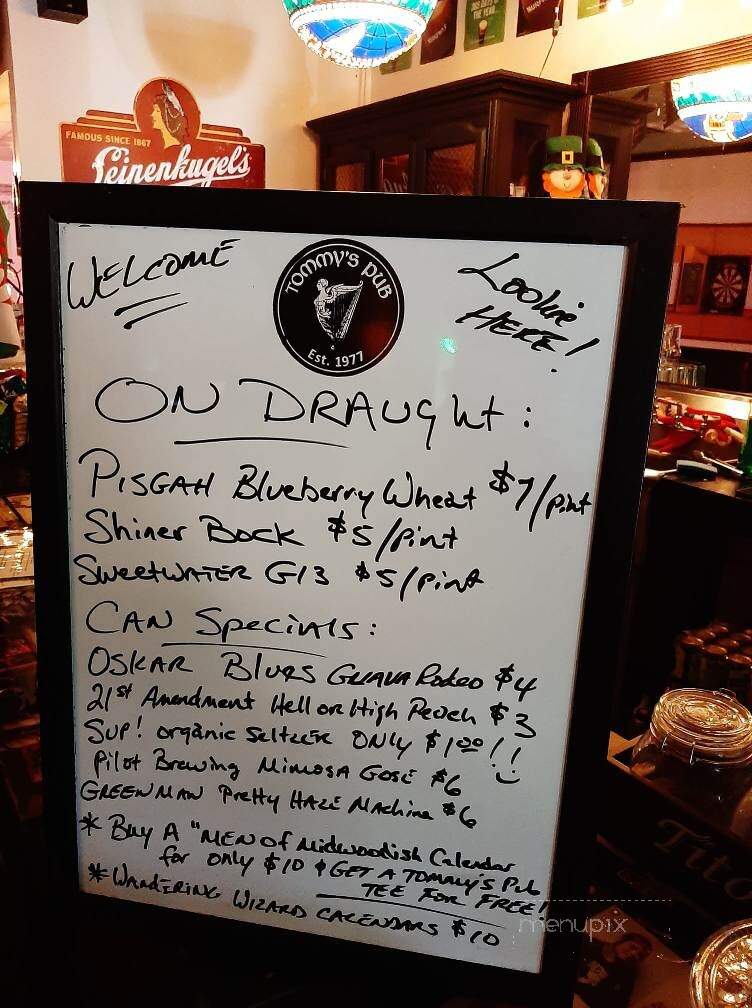 FAMOUS SINCE 1867
Leinenkugel's
WELCOME
TOMMY'S PUB
Est. 1977
Lookie
HERE!
ON DRAUGHT:
PISGAH Blueberry Wheat $7/pint
Shiner Bock $5/pint
SWEETWATER G13 $5/pint
CAN SpeciAls:
OSKAR BLUES GUAVA Rodeo $4
21st Amendment Hell or High Peach $3
SUP! organic Seltzer ONLY $1.00!!
Pilot Brewing Mimosa Gose $6
GREEN MAN Pretty HAZE Machine $6
* Buy A "MEN of Midwoodish Calendar
for only $10 & GET A TOMMY'S Pub
TEE FOR FREE!
* WANDERING WIZARD CALENDARS $10
menupix
Tito